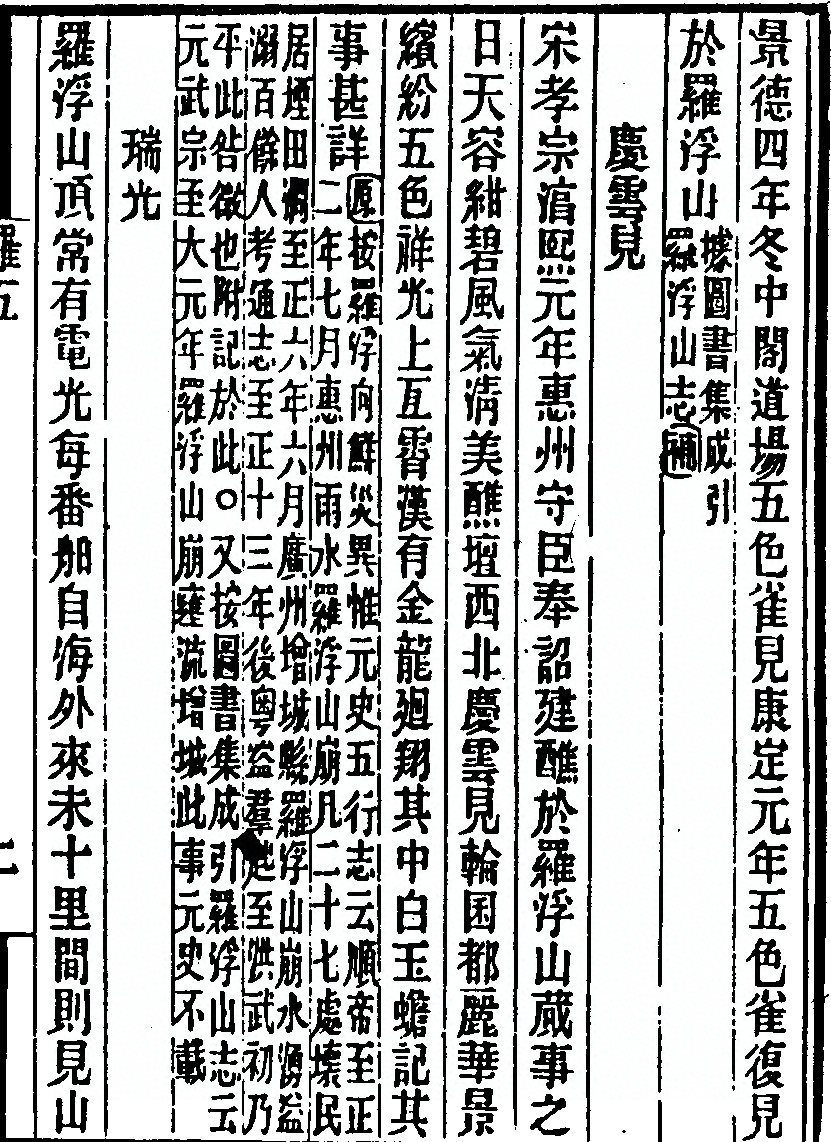 景德四年冬中閣道場五色雀見康定元年五色雀復見
於羅浮山據圖書集成引
羅浮山志補
慶雲見
宋孝宗淳熙元年惠州守臣奉詔建醮於羅浮山蕆事之
日天容紺碧風氣淸美醮壇西北慶雲見輪囷都麗華景
繽紛五色祥光上亙霄漢有金龍廻翔其中白玉蟾記其
事甚詳原按羅浮向鮮災異惟元史五行志云順帝至正
二年七月惠州雨水羅浮山崩凡二十七處壞民
居堙田澗至正六年六月廣州增城縣羅浮山崩水湧溢
溺百餘人考通志至正十三年後粵盜羣起至洪武初乃
平此咎徵也附記於此○又按圖書集成引羅浮山志云
元武宗至大元年羅浮山崩壅流增城此事元史不載
瑞光
羅浮山頂常有電光每番舶自海外來未十里間則見山
羅五
二